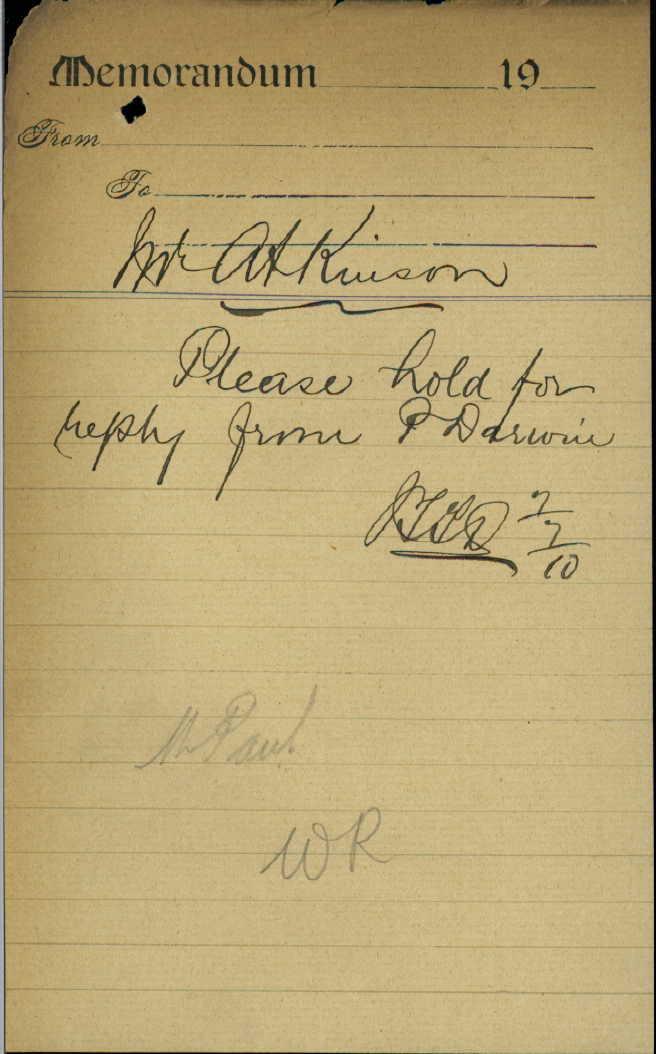 Memorandum 19
From
To
Mr Atkinson
Please hold for
reply from P Darwin
7
7
10
Mr Paul
WR